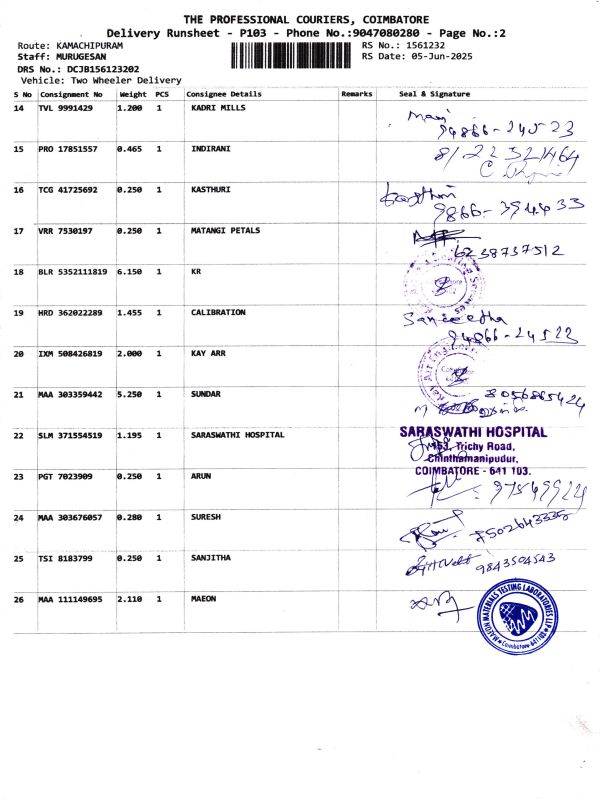 THE PROFESSIONAL COURIERS, COIMBATORE
Delivery Runsheet - P103 - Phone No.:9047080280 - Page No.:2
Route: KAMACHIPURAM RS No.: 1561232
Staff: MURUGESAN RS Date: 05-Jun-2025
DRS No.: DCJB156123202
Vehicle: Two Wheeler Delivery
S No Consignment No Weight PCS Consignee Details Remarks Seal & Signature
14 TVL 9991429 1.200 1 KADRI MILLS
Mani
94866-24523
15 PRO 17851557 0.465 1 INDIRANI
16 TCG 41725692 0.250 1 KASTHURI
Kasthuri
9866-394433
17 VRR 7530197 0.250 1 MATANGI PETALS
6238737512
18 BLR 5352111819 6.150 1 KR
19 HRD 362022289 1.455 1 CALIBRATION
Sangeetha
94866-24522
20 IXM 508426819 2.000 1 KAY ARR
21 MAA 303359442 5.250 1 SUNDAR
8056865424
22 SLM 371554519 1.195 1 SARASWATHI HOSPITAL
SARASWATHI HOSPITAL
Trichy Road,
Chinthamanipudur,
COIMBATORE - 641 103.
23 PGT 7023909 0.250 1 ARUN
24 MAA 303676057 0.280 1 SURESH
7502643335
25 TSI 8183799 0.250 1 SANJITHA
9843504543
26 MAA 111149695 2.110 1 MAEON
MAEON MATERIALS TESTING LABORATORIES LLP
Coimbatore